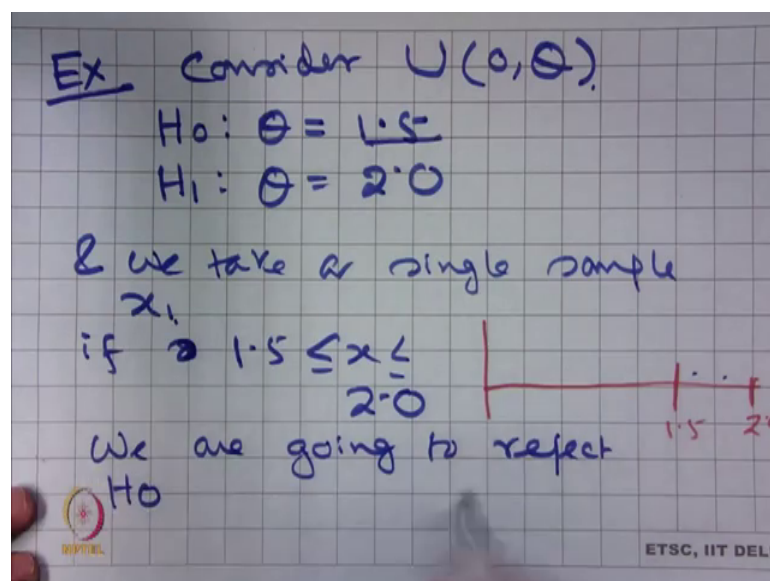 Ex Consider U(0, θ).
H0: θ = 1.5
H1: θ = 2.0
& we take a single sample
x1.
if 1.5 ≤ x ≤
2.0
1.5 2.
We are going to reject
H0
NPTEL
ETSC, IIT DEL